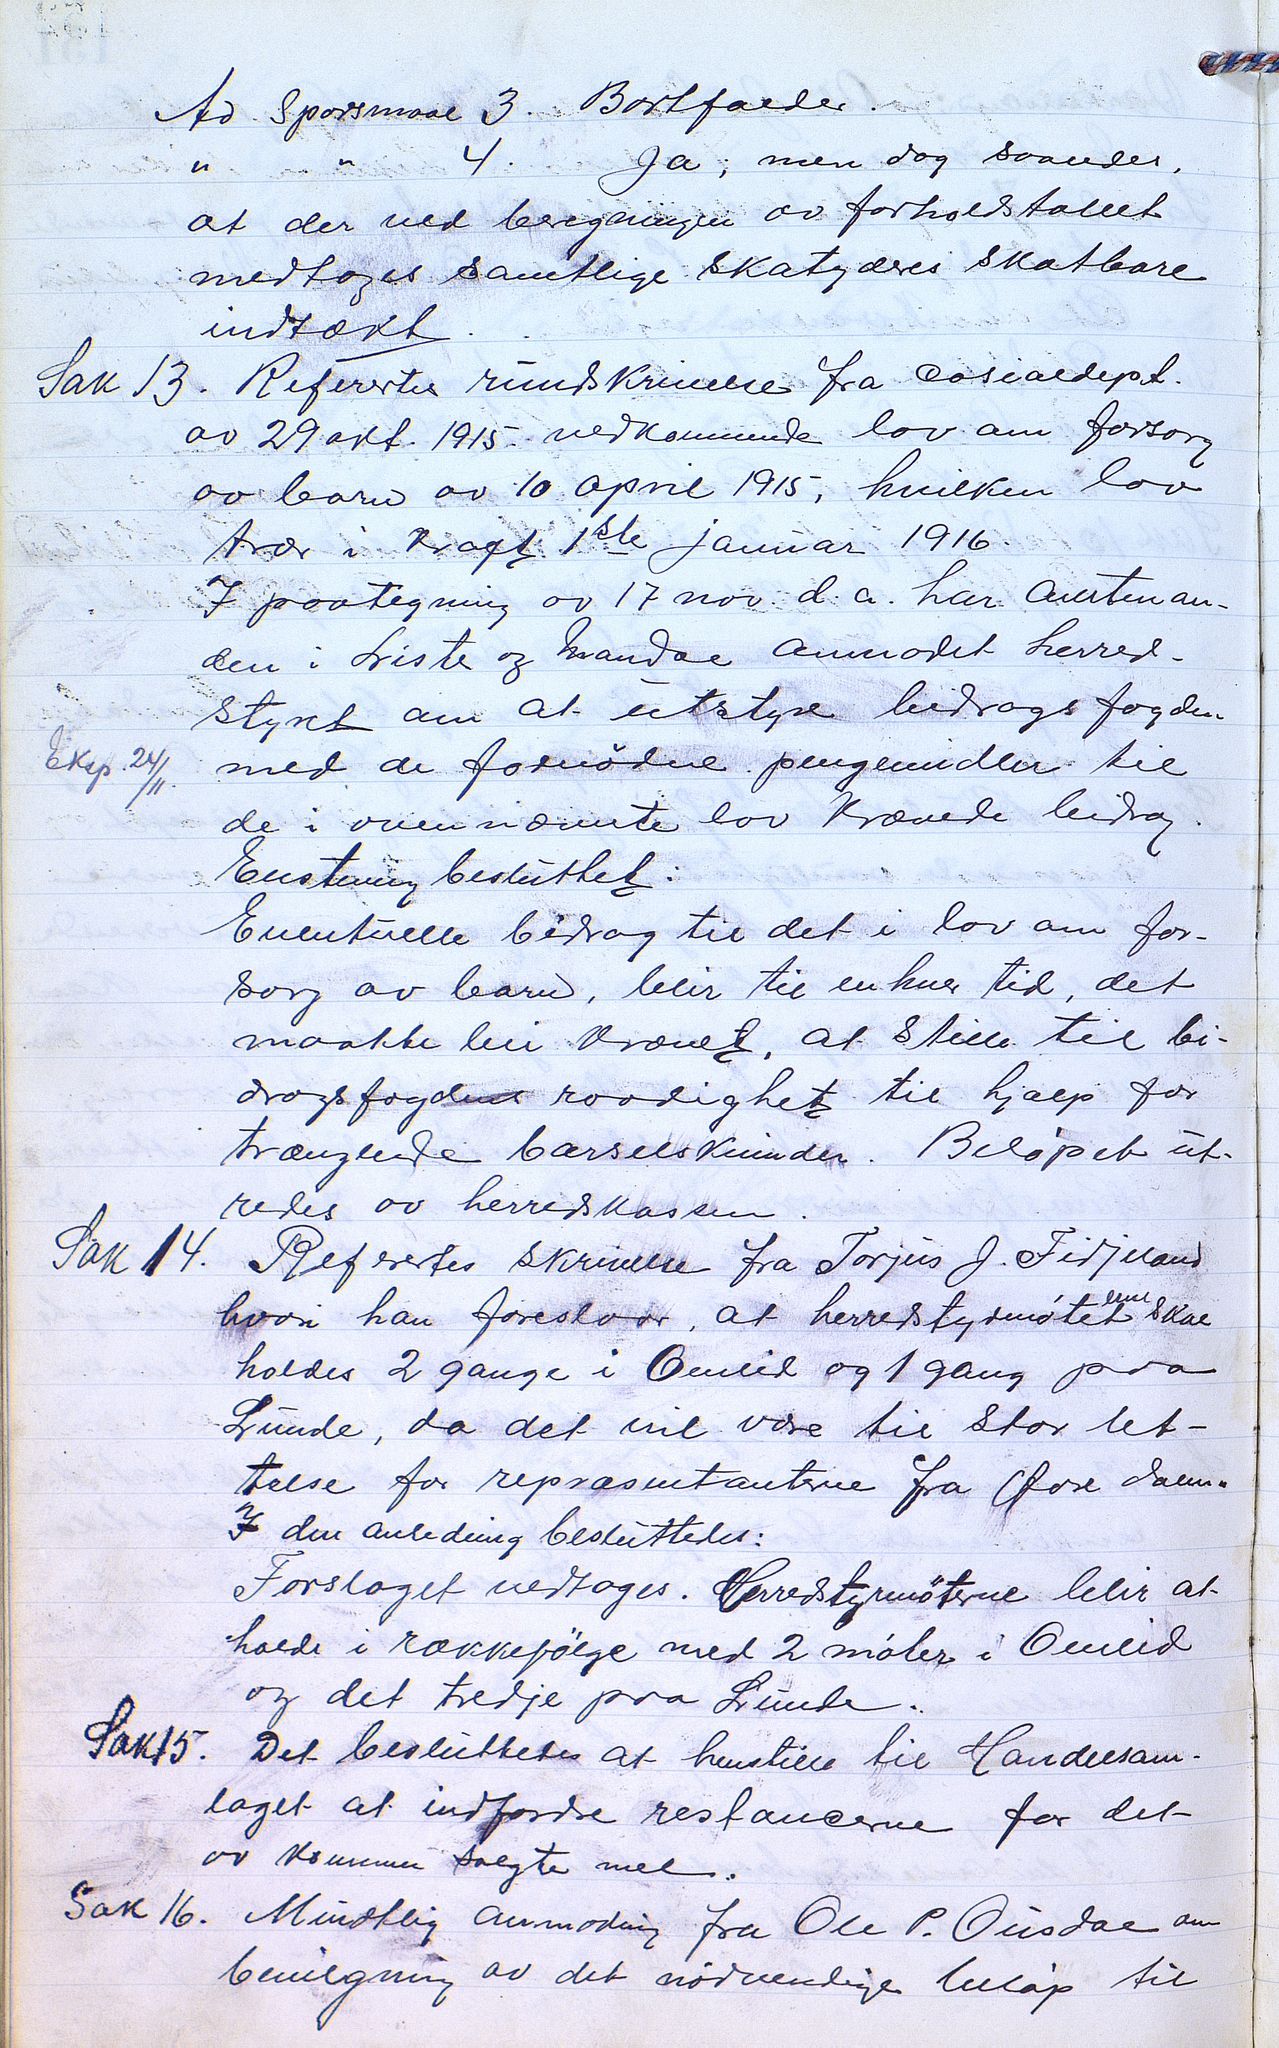 Ad Spørsmaal 3. Bortfalder.
" " 4. Ja, men dog saaledes,
at der ved beregningen av forholdstallet
medtages samtlige skatyderes skatbare
indtækt.
Sak 13. Refertes rundskrivelse fra Sosialdept.
av 29 okt. 1915 vedkommende lov om forsorg
av barn av 10 april 1915, hvilken lov
trær i kraft 1ste januar 1916.
I paategning av 17 nov. d. a. har amtman-
den i Lister og Mandal anmodet herred-
styret om at utstyre bidragsfogden
Eksp. 24/11. med de fornødne pengemidler til
de i ovennævnte lov krævede bidrag.
Enstemmig besluttet:
Eventuelle bidrag til det i lov om for-
sorg av barn, blir til enhver tid, det
maatte bli krævet, at stille til bi-
dragsfogdens raadighet til hjælp for
trængende barselskvinder. Beløpet ut-
redes av herredskassen.
Sak 14. Refertes skrivelse fra Torjus J. Fidjeland
hvori han foreslaar, at herredstyrmøtet skal
holdes 2 gange i Omlid og 1 gang paa
Lunde, da det vil være til stor let-
telse for repræsentanterne fra Øvre dalen.
I den anledning besluttedes:
Forslaget vedtages. Herredstyrmøterne blir at
holde i rækkefølge med 2 møter i Omlid
og det tredje paa Lunde.
Sak 15. Det besluttedes at henstille til Handelsam-
laget at indfordre restancerne for det
av kommunen solgte mel.
Sak 16. Mundtlig anmodning fra Ole P. Ousdal om
bevilgning av det nødvendige beløp til